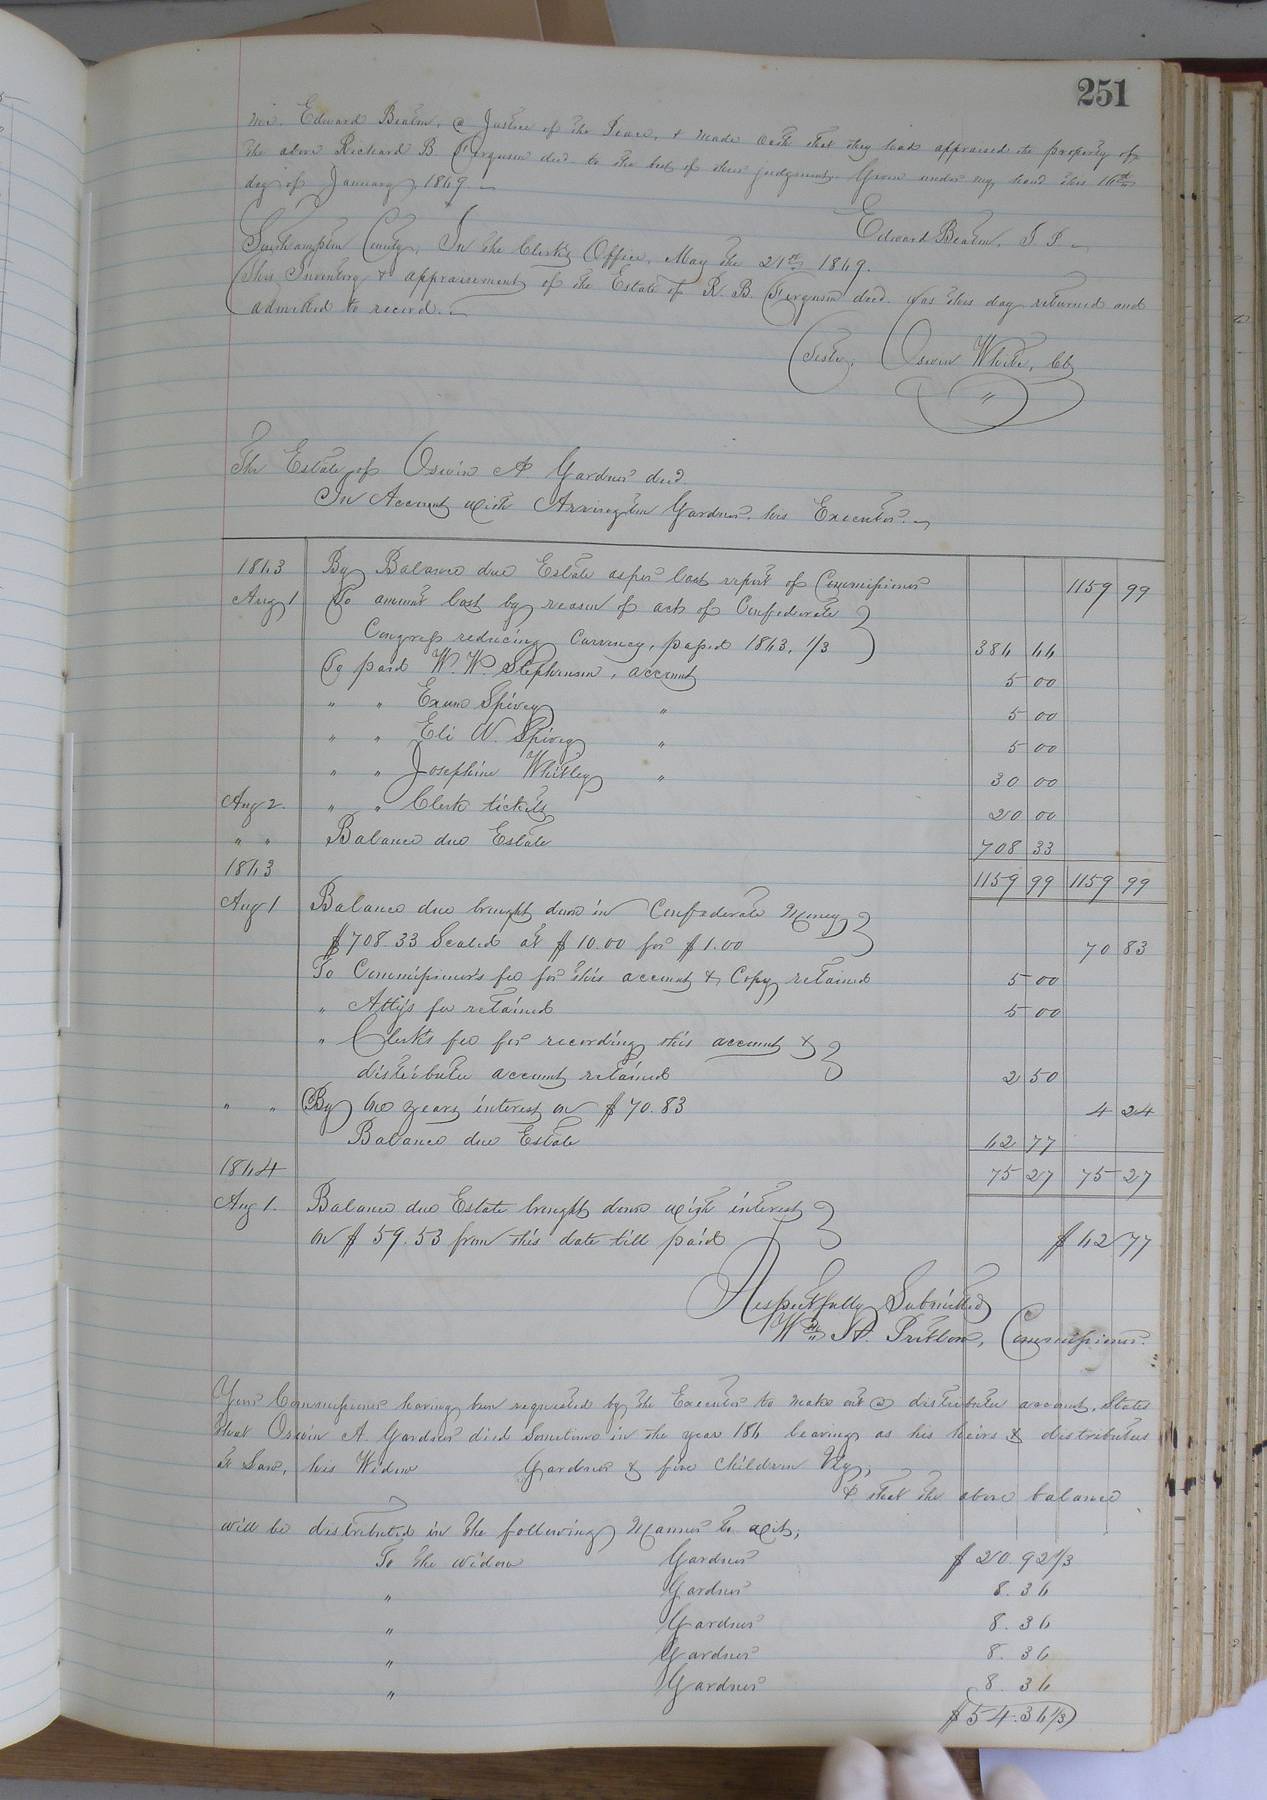 251
me. Edward Beaton, a Justice of the Peace, & made oath that they had appraised the property of
the above Richard B. Ferguson decd. to the best of their judgment. Given under my hand this 16th
day of January, 1869.
Edward Beaton. J. P.
Southampton County, In the Clerk's Office, May the 21st 1869.
This Inventory & appraisement of the Estate of R. B. Ferguson decd. was this day returned and
admitted to record.
Teste, Oswin White, Clk
The Estate of Oswin A. Gardner decd.
In Account with Arrington Gardner, his Executor.
1863 By Balance due Estate as per last report of Commissioner 1159 99
Aug 1 To amount lost by reason of act of Confederate
Congress reducing Currency, passed 1863, 1/3 386 66
To paid W. W. Stephenson, account 5 00
" " Exum Spivey " 5 00
" " Eli W. Spivey " 5 00
" " Josephine Whitley " 30 00
Aug 2. " " Clerk tickets 20 00
" " Balance due Estate 708 33
1863 1159 99 1159 99
Aug 1 Balance due brought down in Confederate Money
$708.33 Scaled at $10.00 for $1.00 70 83
To Commissioner's fee for this account & Copy retained 5 00
" Atty's fee retained 5 00
" Clerk's fee for recording this account &
distributee account retained 2 50
" " By one years interest on $70.83 4 24
Balance due Estate 62 77
1864 75 27 75 27
Aug 1. Balance due Estate brought down with interest
on $59.53 from this date till paid $62 77
Respectfully Submitted
Wm A. Pretlow, Commissioner.
Your Commissioner having been requested by the Executor to make out a distributee account, States
that Oswin A. Gardner died sometime in the year 186 leaving as his heirs & distributees
at Law, his Widow Gardner & five children Viz;
& that the above balance
will be distributed in the following Manner to wit;
To the widow Gardner $20.92 1/3
" Gardner 8.36
" Gardner 8.36
" Gardner 8.36
" Gardner 8.36
$54.36 1/3